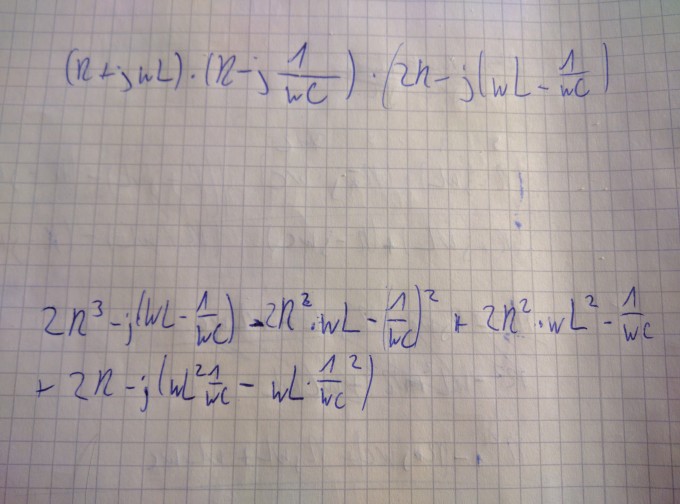 (R+jwL)·(R-j 1/wC)·(2R-j(wL-1/wC)
2R³-j(wL-1/wC)-2R²·wL-(1/wC)²+2R²·wL²-1/wC
+2R-j(wL² 1/wC-wL·1/wC²)